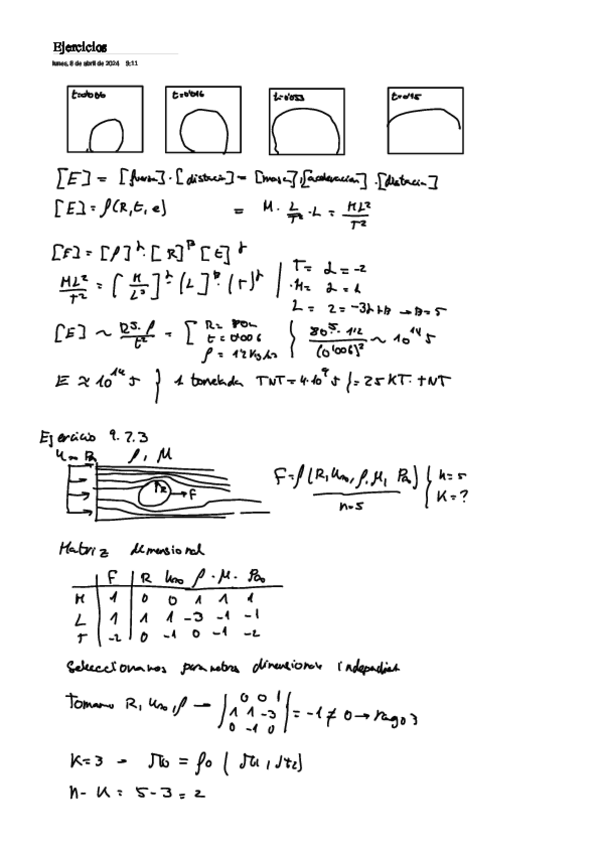 Ejercicios
lunes, 8 de abril de 2024 9:11
t=0'006 t=0'016 t=0'053 t=0'15
[E] = [fuerza]·[distancia] = [masa]·[aceleración]·[distancia]
[E] = f(R, t, e) = M · L/T² · L = ML²/T²
[E] = [ρ]^α · [R]^β [t]^γ
ML²/T² = [M/L³]^α · (L)^β · (T)^γ | T = α = -2
M = α = 1
L = 2 = -3α+β → β = 5
[E] ~ R5·ρ/t² = [ R = 80m
t = 0'006
ρ = 1'2 Kg/m
} 80⁵·1'2/(0'006)² ~ 10¹⁴ J
E ≈ 10¹⁴ J } 1 tonelada TNT = 4·10⁹ J } = 25 KT · TNT
Ejercicio 9.2.3
U∞ P∞ ρ, M
R F
F = f(R, U∞, ρ, μ, P∞) { n = 5
n=5 K = ?
Matriz dimensional
F R U∞ ρ · μ · P∞
M 1 0 0 1 1 1
L 1 1 1 -3 -1 -1
T -2 0 -1 0 -1 -2
Seleccionamos dimensional
Tomamos R, U∞, ρ → | 0 0 1
1 1 -3
0 -1 0 | = -1 ≠ 0 → rango 3
K=3 → π0 = f0 (π1, π2)
n - K = 5-3 = 2